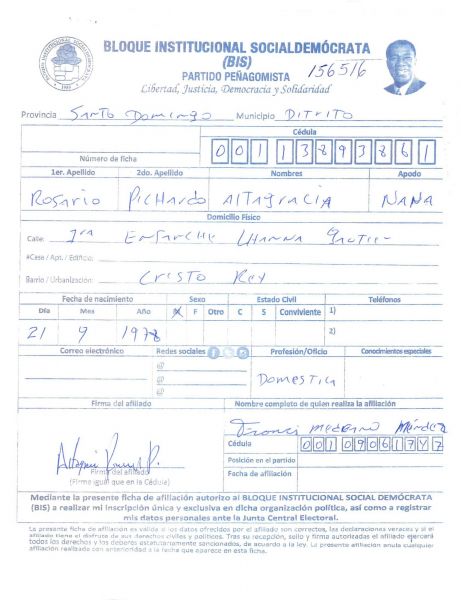 BLOQUE INSTITUCIONAL SOCIALDEMÓCRATA
(BIS)
PARTIDO PEÑAGOMISTA
156516
Libertad, Justicia, Democracia y Solidaridad
Provincia Santo Domingo Municipio DITRITO
Cédula
Número de ficha 00113893861
1er. Apellido 2do. Apellido Nombres Apodo
Rosario Pichardo Altagracia NANA
Domicilio Físico
Calle: 1ra Ensanche
#Case / Apt. / Edificio:
Barrio / Urbanización: Cristo Rey
Fecha de nacimiento Sexo Estado Civil Teléfonos
Día Mes Año F Otro C S Conviviente 1)
21 9 1978 2)
Correo electrónico Redes sociales Profesión/Oficio Conocimientos especiales
@
@
@
Domestica
Firma del afiliado Nombre completo de quien realiza la afiliación
Méndez
Cédula
Posición en el partido
Fecha de afiliación
Firma del afiliado
(Firma igual que en la Cédula)
Mediante la presente ficha de afiliación autorizo al BLOQUE INSTITUCIONAL SOCIAL DEMÓCRATA
(BIS) a realizar mi inscripción única y exclusiva en dicha organización política, así como a registrar
mis datos personales ante la Junta Central Electoral.
La presente ficha de afiliación es valida a los datos ofrecidos por el afiliado son correctos, las declaraciones veraces y si el
afiliado tiene el disfrute de sus derechos civiles y políticos. Tras su recepción, sello y firma autorizados el afiliado ejercerá
todos los derechos y los deberes estatutariamente sancionados, de acuerdo a la ley. La presente afiliación anula cualquier
afiliación realizada con anterioridad a la fecha que aparece en esta ficha.